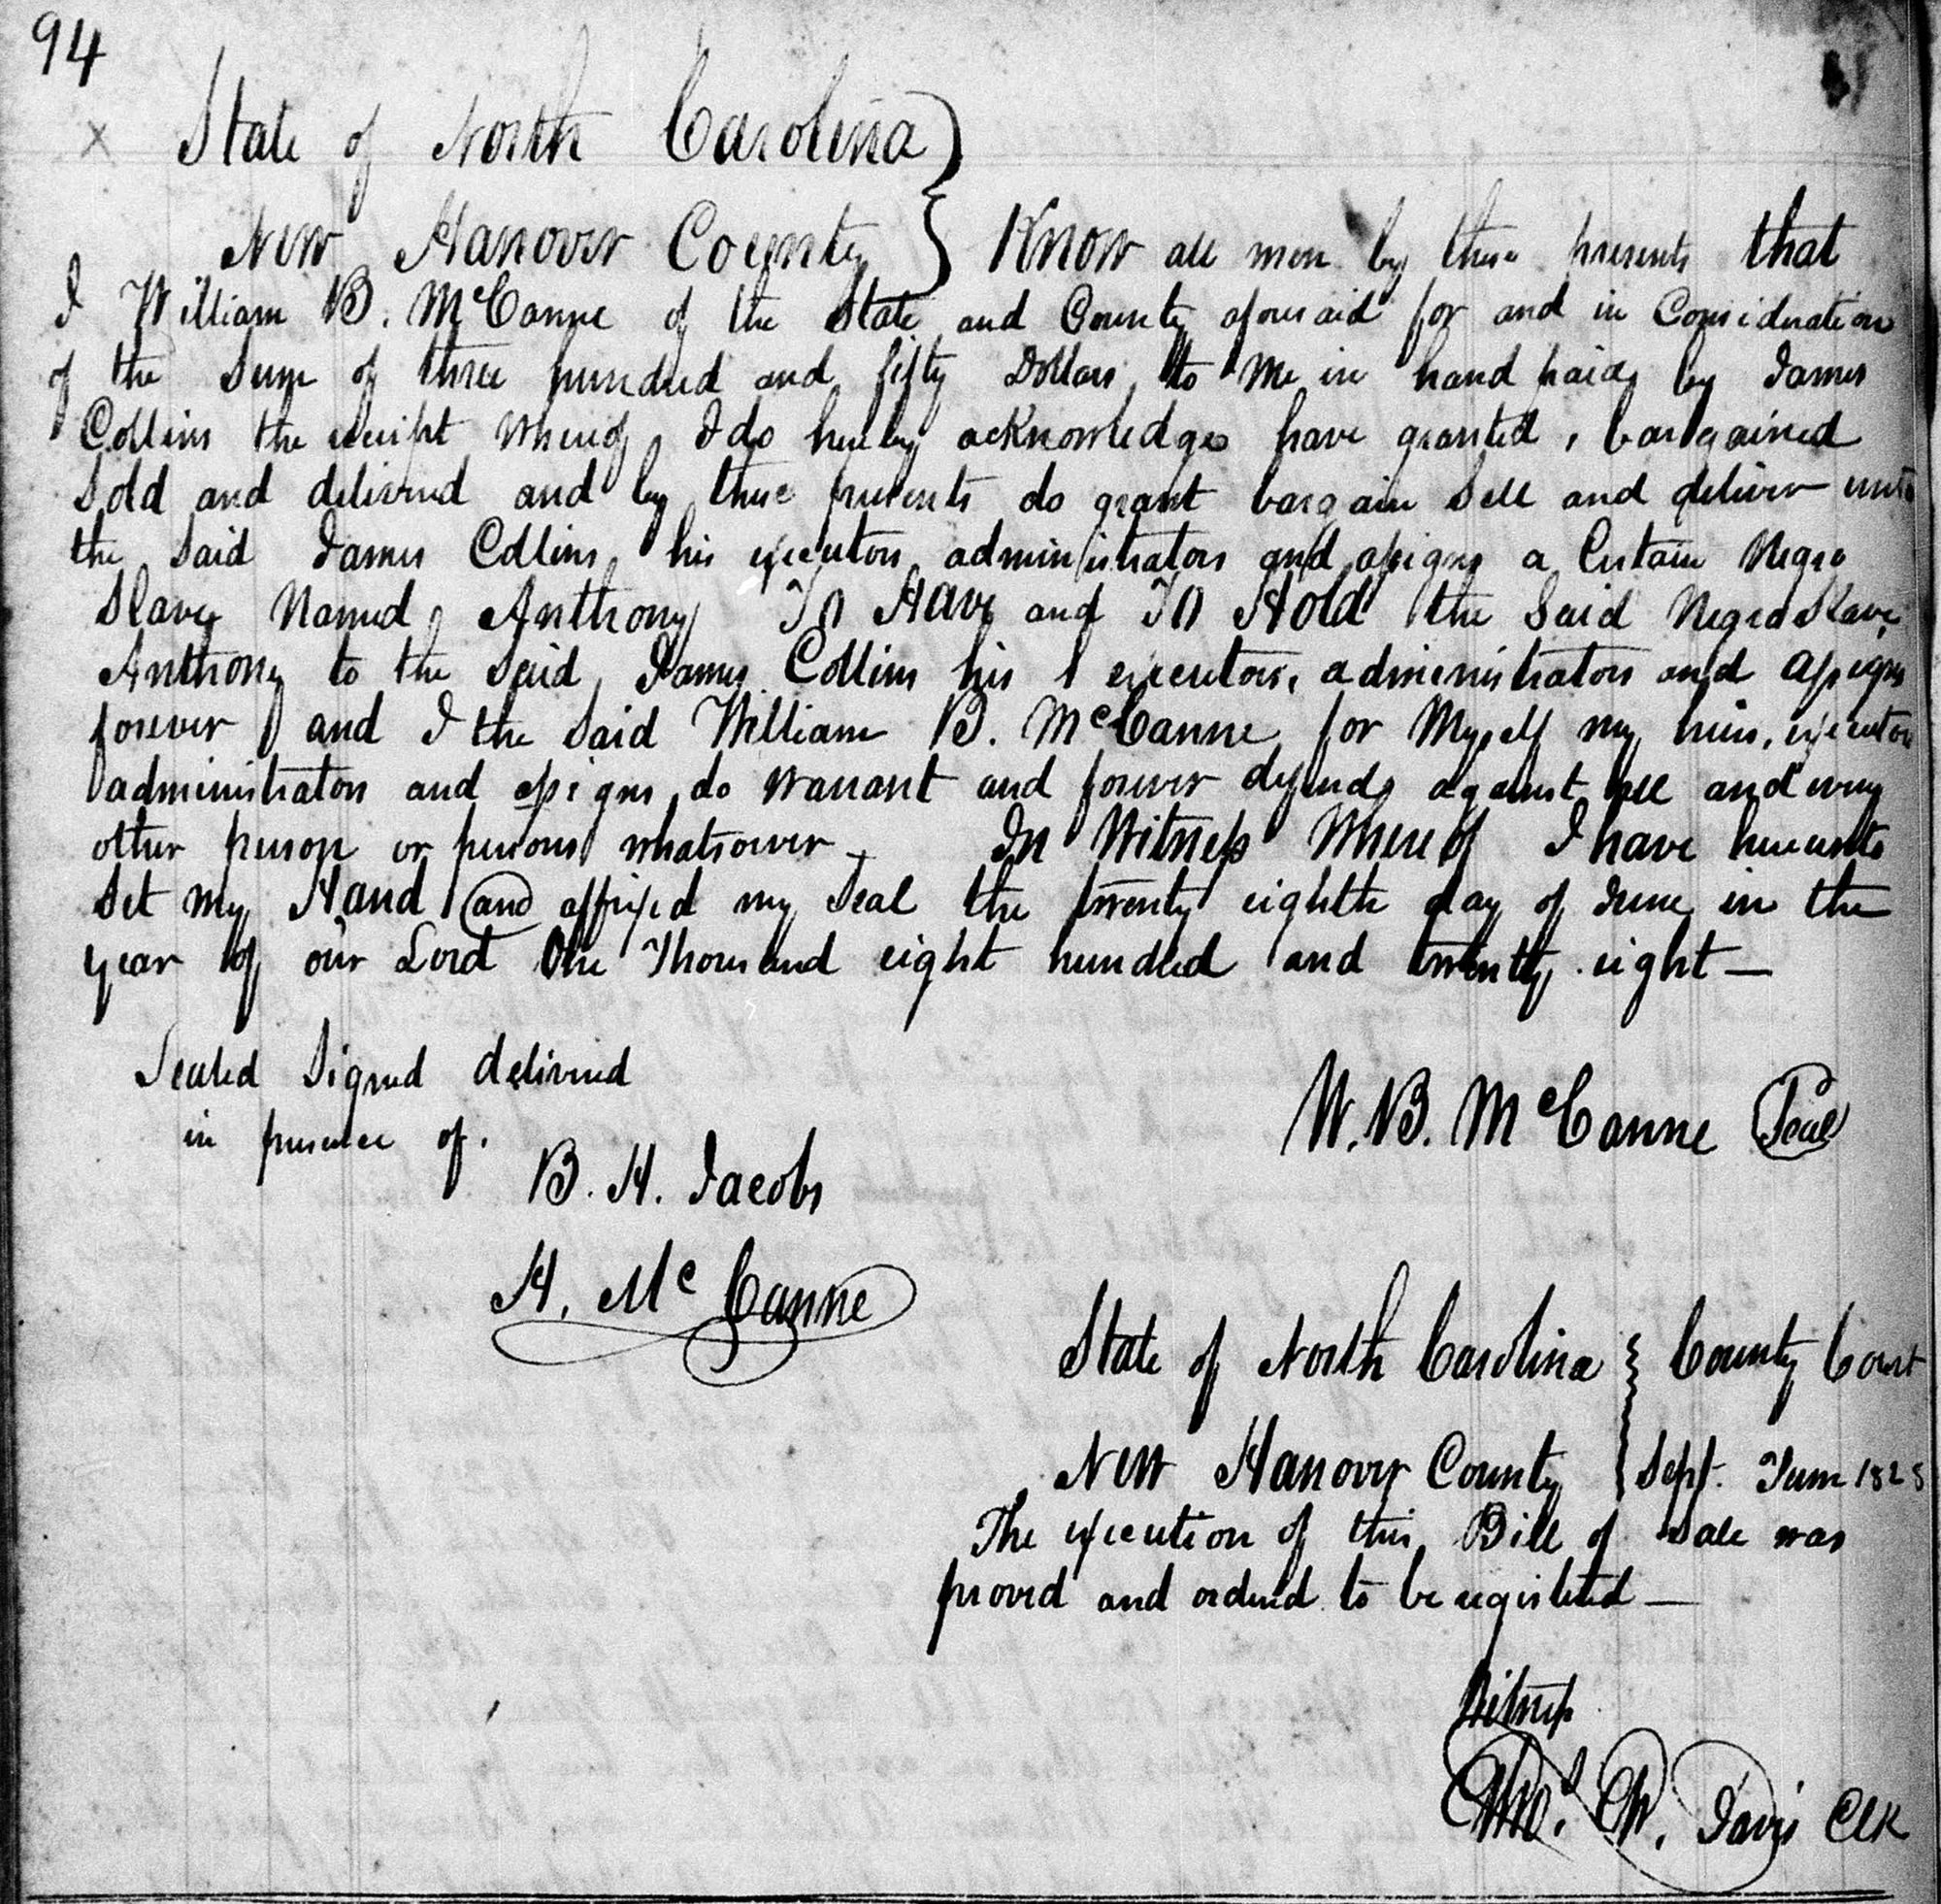 94
x State of North Carolina
New Hanover County } Know all men by these presents that
I William B. McCanne of the State and County aforesaid for and in Consideration
of the Sum of three hundred and fifty Dollars to me in hand paid by James
Collins the receipt whereof I do hereby acknowledge have granted, bargained
Sold and delivered and by these presents do grant bargain Sell and deliver unto
the Said James Collins his executors administrators and assigns a Certain Negro
Slave Named Anthony To Have and To Hold the Said Negro Slave
Anthony to the Said James Collins his executors, administrators and assigns
forever and I the Said William B. McCanne for Myself my heirs, executors
administrators and assigns do warrant and forever defend against all and every
other person or persons whatsoever - In Witness Whereof I have hereunto
Set my Hand and affixed my Seal the twenty eighth day of June in the
year of our Lord One Thousand eight hundred and twenty eight —
Sealed Signed delivered
in presence of.
W. B. McCanne Seal
B. H. Jacobs
H. McCanne
State of North Carolina } County Court
New Hanover County } Sept. Term 1828
The execution of this Bill of Sale was
proved and ordered to be registered —
Witness
Thos. F. Davis Clk